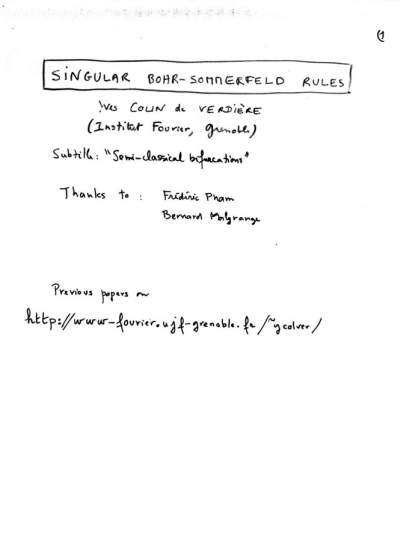 1
SINGULAR BOHR-SOMMERFELD RULES
Yves COLIN de VERDIÈRE
(Institut Fourier, Grenoble)
Subtitle: "Semi-classical bifurcations"
Thanks to : Frédéric Pham
Bernard Malgrange
Previous papers on
http://www-fourier.ujf-grenoble.fr/~ycolver/